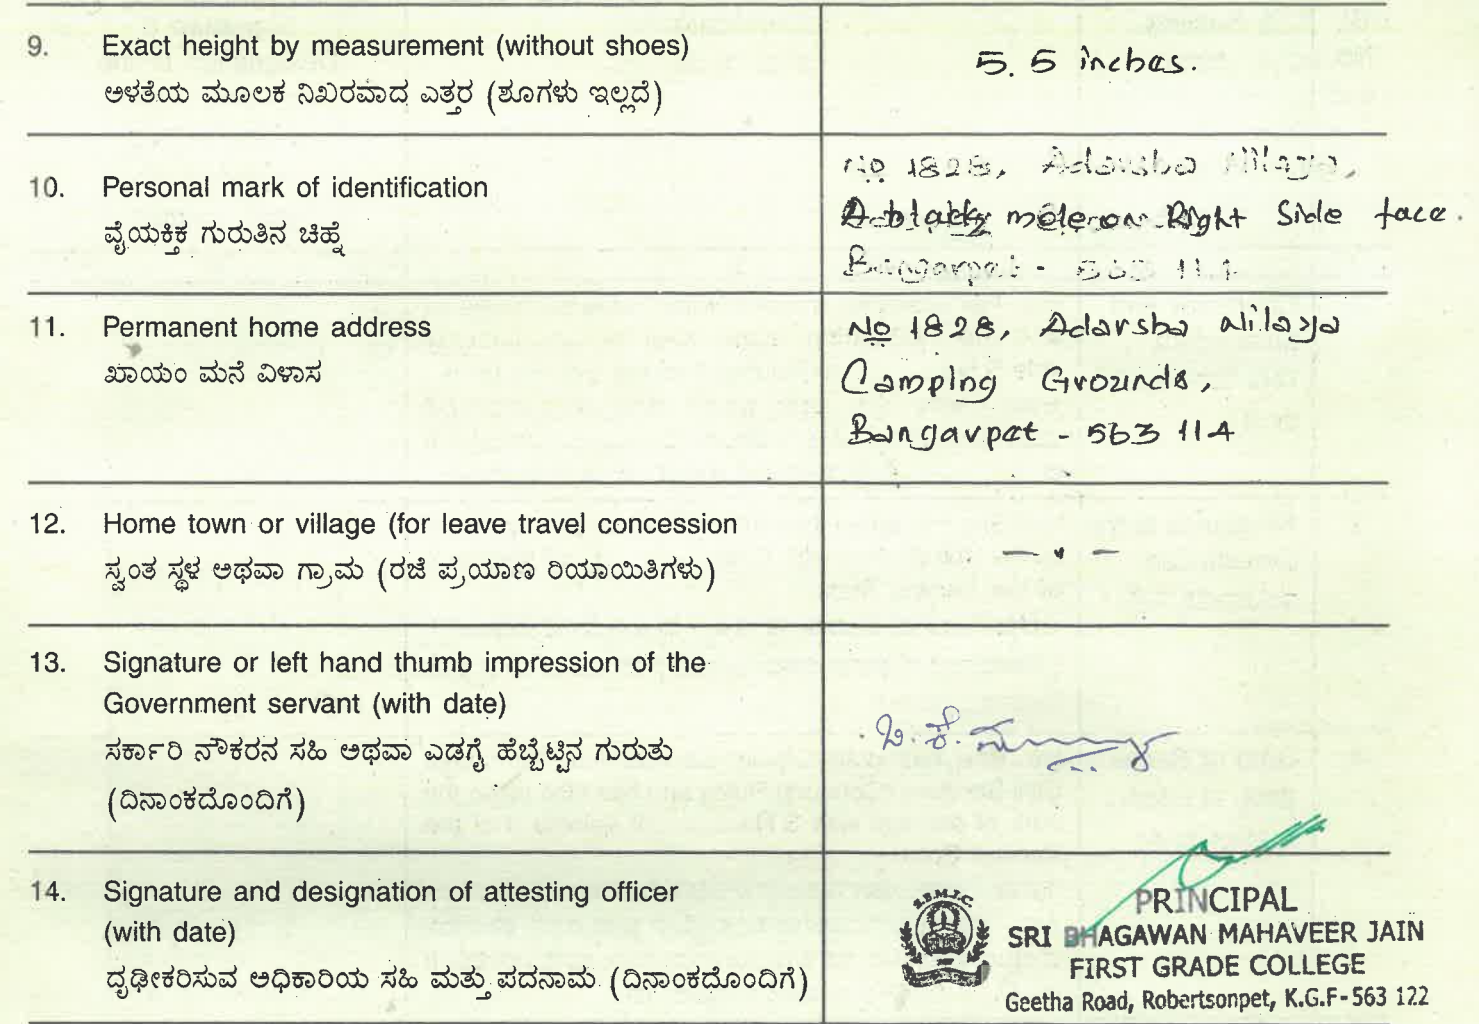 9. Exact height by measurement (without shoes)
ಅಳತೆಯ ಮೂಲಕ ನಿಖರವಾದ ಎತ್ತರ (ಶೂಗಳು ಇಲ್ಲದೆ)
5.5 inches.
10. Personal mark of identification
ವೈಯಕ್ತಿಕ ಗುರುತಿನ ಚಿಹ್ನೆ
No 1828, Adarsha Nilaya,
A black mole on Right Side face.
Bangarpet - 563 114
11. Permanent home address
ಖಾಯಂ ಮನೆ ವಿಳಾಸ
No 1828, Adarsha Nilaya
Camping Grounds,
Bangarpet - 563 114
12. Home town or village (for leave travel concession
ಸ್ವಂತ ಸ್ಥಳ ಅಥವಾ ಗ್ರಾಮ (ರಜೆ ಪ್ರಯಾಣ ರಿಯಾಯಿತಿಗಳು)
13. Signature or left hand thumb impression of the
Government servant (with date)
ಸರ್ಕಾರಿ ನೌಕರನ ಸಹಿ ಅಥವಾ ಎಡಗೈ ಹೆಬ್ಬೆಟ್ಟಿನ ಗುರುತು
(ದಿನಾಂಕದೊಂದಿಗೆ)
14. Signature and designation of attesting officer
(with date)
ದೃಢೀಕರಿಸುವ ಅಧಿಕಾರಿಯ ಸಹಿ ಮತ್ತು ಪದನಾಮ (ದಿನಾಂಕದೊಂದಿಗೆ)
PRINCIPAL
SRI BHAGAWAN MAHAVEER JAIN
FIRST GRADE COLLEGE
Geetha Road, Robertsonpet, K.G.F-563 122